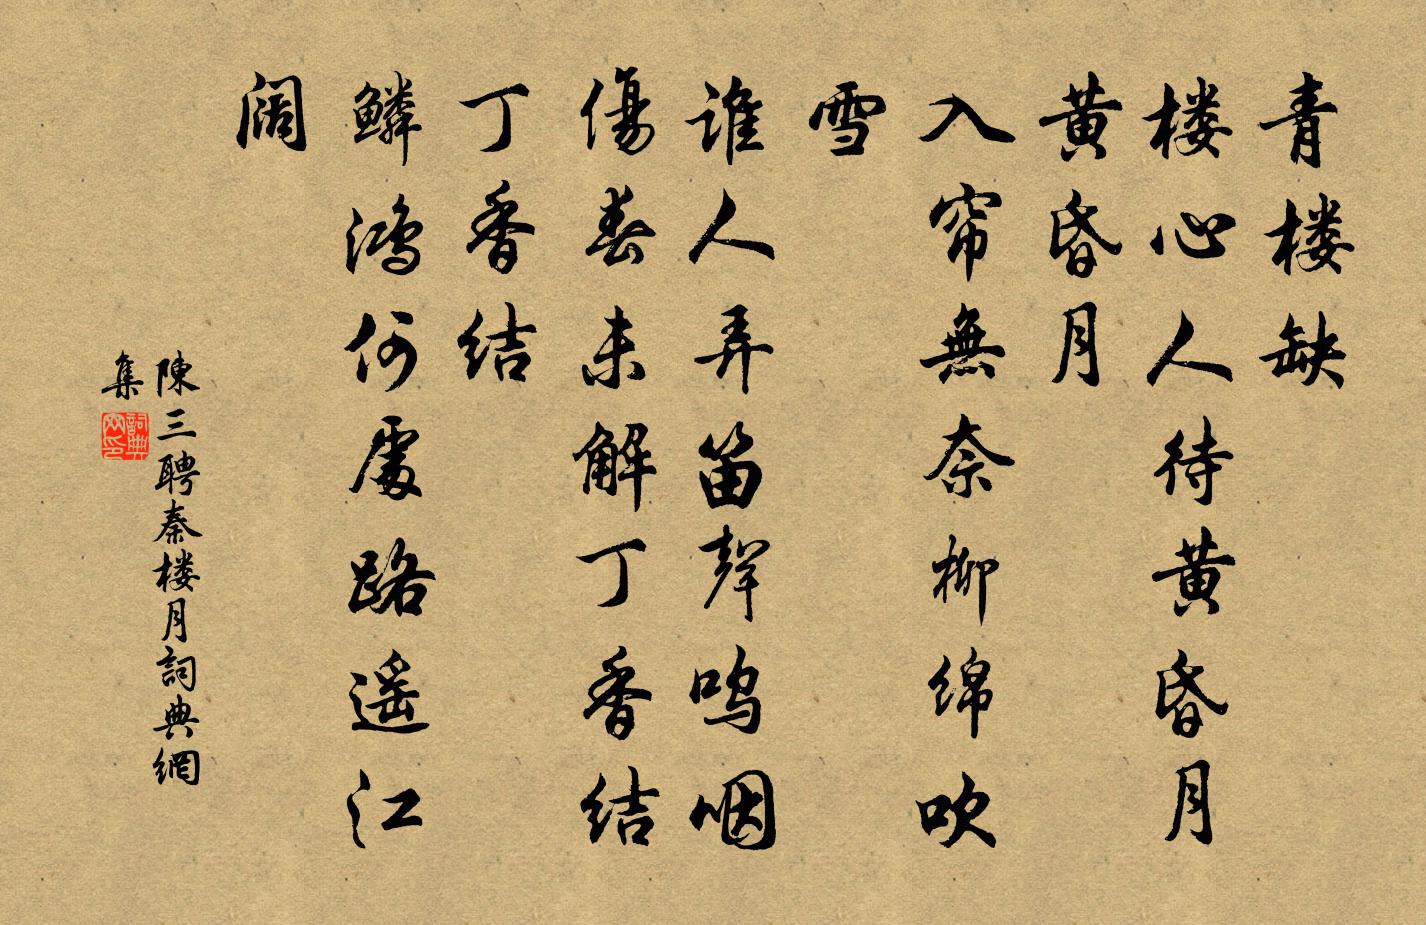 青楼缺
楼心人待黄昏月
黄昏月
入帘無奈柳绵吹
雪
谁人弄笛聲呜咽
傷春未解丁香结
丁香结
鱗鴻何處路遥江
阔
陳三聘秦楼月詞典網
集
詞典
网印